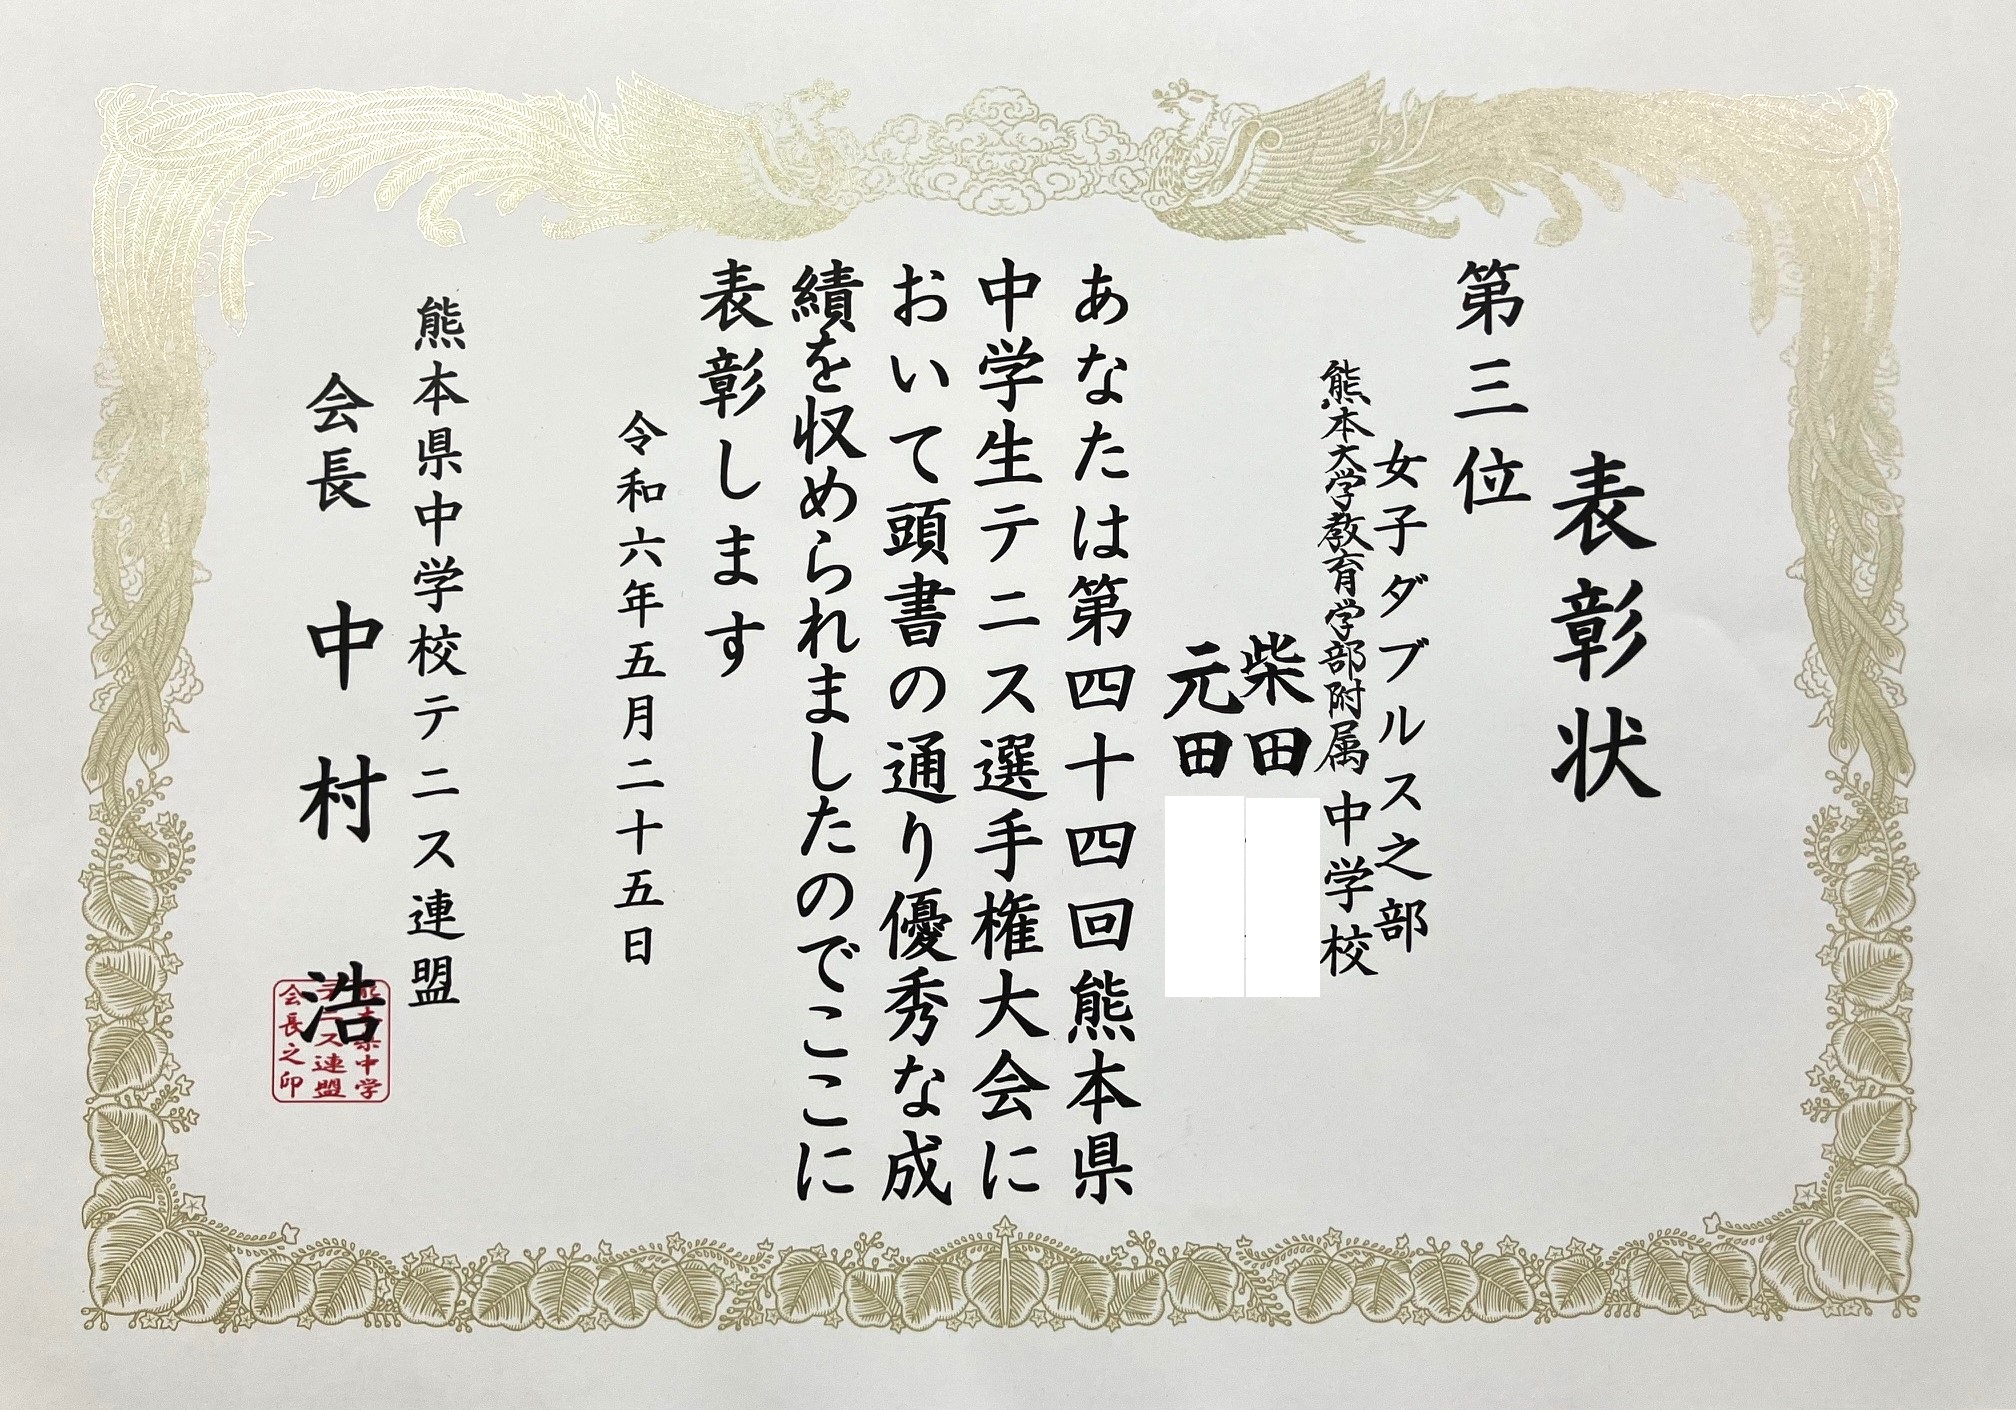 表彰状
第三位
女子ダブルス之部
熊本大学教育学部附属中学校
柴田
元田
あなたは第四十四回熊本県
中学生テニス選手権大会に
おいて頭書の通り優秀な成
績を収められましたのでここに
表彰します
令和六年五月二十五日
熊本県中学校テニス連盟
会長 中村 浩
会長之印